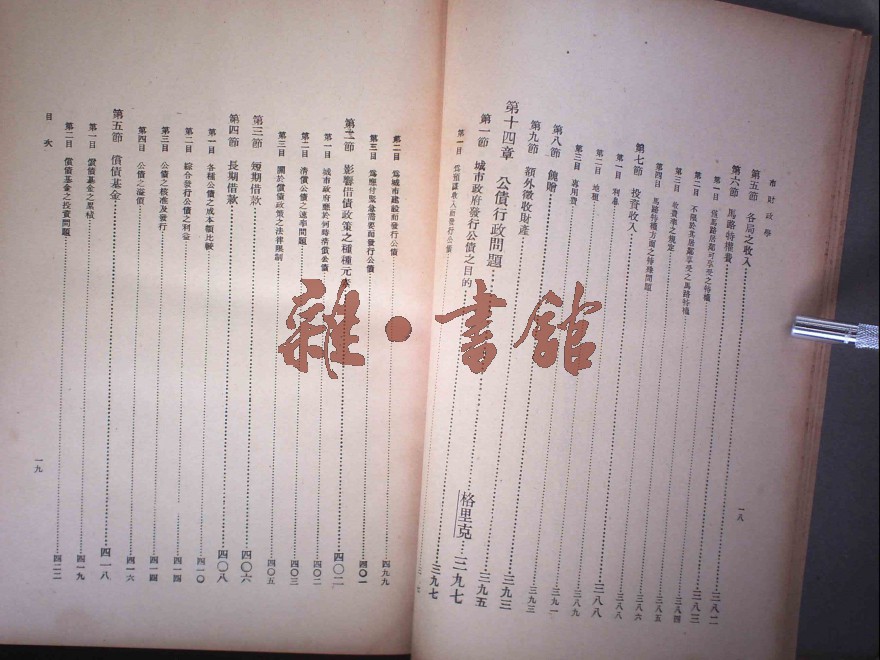 市財政學
一八
第五節 各局之收入……三八二
第六節 馬路特權費……三八三
第一目 僅馬路居鄰可享受之特權……三八四
第二目 不限於其居鄰享受之馬路特權……三八五
第三目 收費率之規定……三八六
第四目 馬路特權方面之特殊問題……三八八
第七節 投資收入……三八八
第一目 利息……三八九
第二目 地租……三九一
第三目 專用費……三九三
第八節 餽贈……三九三
第九節 額外徵收財產……三九五
第十四章 公債行政問題……格里克…三九七
第一節 城市政府發行公債之目的……三九七
第一目 爲預謀收入而發行公債
第二目 爲城市建設而發行公債……四九九
第三目 爲應付緊急需要而發行公債……四〇一
第二節 影響借債政策之種種元素……四〇二
第一目 城市政府應於何時清償公債……四〇二
第二目 清償公債之速率問題……四〇三
第三目 關於償債政策之法律限制……四〇五
第三節 短期借款……四〇六
第四節 長期借款……四〇八
第一目 各種公債之成本額比較……四一〇
第二目 綜合發行公債之利益……四一四
第三目 公債之核准及發行……四一四
第四目 公債之溢價……四一六
第五節 償債基金……四一八
第一目 償債基金之累積……四一九
第二目 償債基金之投資問題……四二二
目次
一九
雜·書館